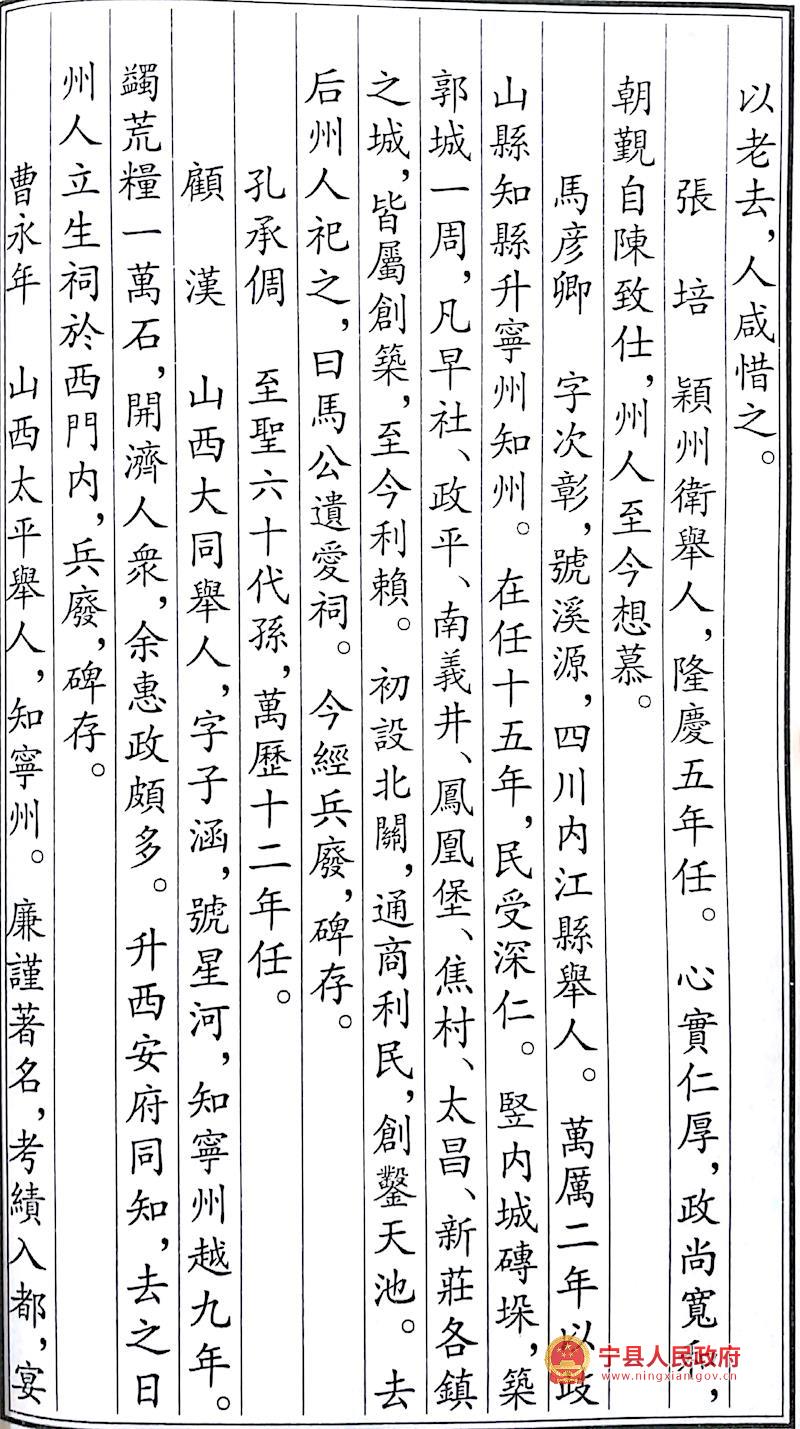 以老去，人咸惜之。
張　培　潁州衛舉人，隆慶五年任。心實仁厚，政尚寬和，
朝覲自陳致仕，州人至今想慕。
馬彦卿　字次彰，號溪源，四川内江縣舉人。萬厲二年以岐
山縣知縣升寧州知州。在任十五年，民受深仁。竪内城磚垛，築
郭城一周，凡早社、政平、南義井、鳳凰堡、焦村、太昌、新莊各鎮
之城，皆屬創築，至今利賴。初設北關，通商利民，創鑿天池。去
后州人祀之，曰馬公遺愛祠。今經兵廢，碑存。
孔承倜　至聖六十代孫，萬歷十二年任。
顧　漢　山西大同舉人，字子涵，號星河，知寧州越九年。
蠲荒糧一萬石，開濟人衆，余惠政頗多。升西安府同知，去之日
州人立生祠於西門内，兵廢，碑存。
曹永年　山西太平舉人，知寧州。廉謹著名，考績入都，宴
宁县人民政府
www.ningxian.gov.cn